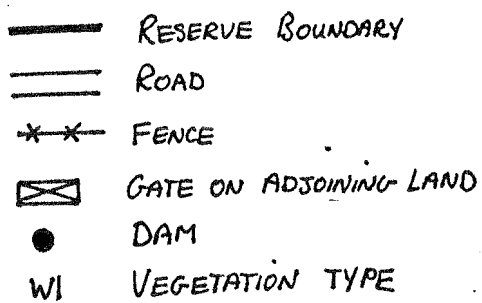 RESERVE BOUNDARY
ROAD
FENCE
GATE ON ADJOINING LAND
DAM
W1 VEGETATION TYPE